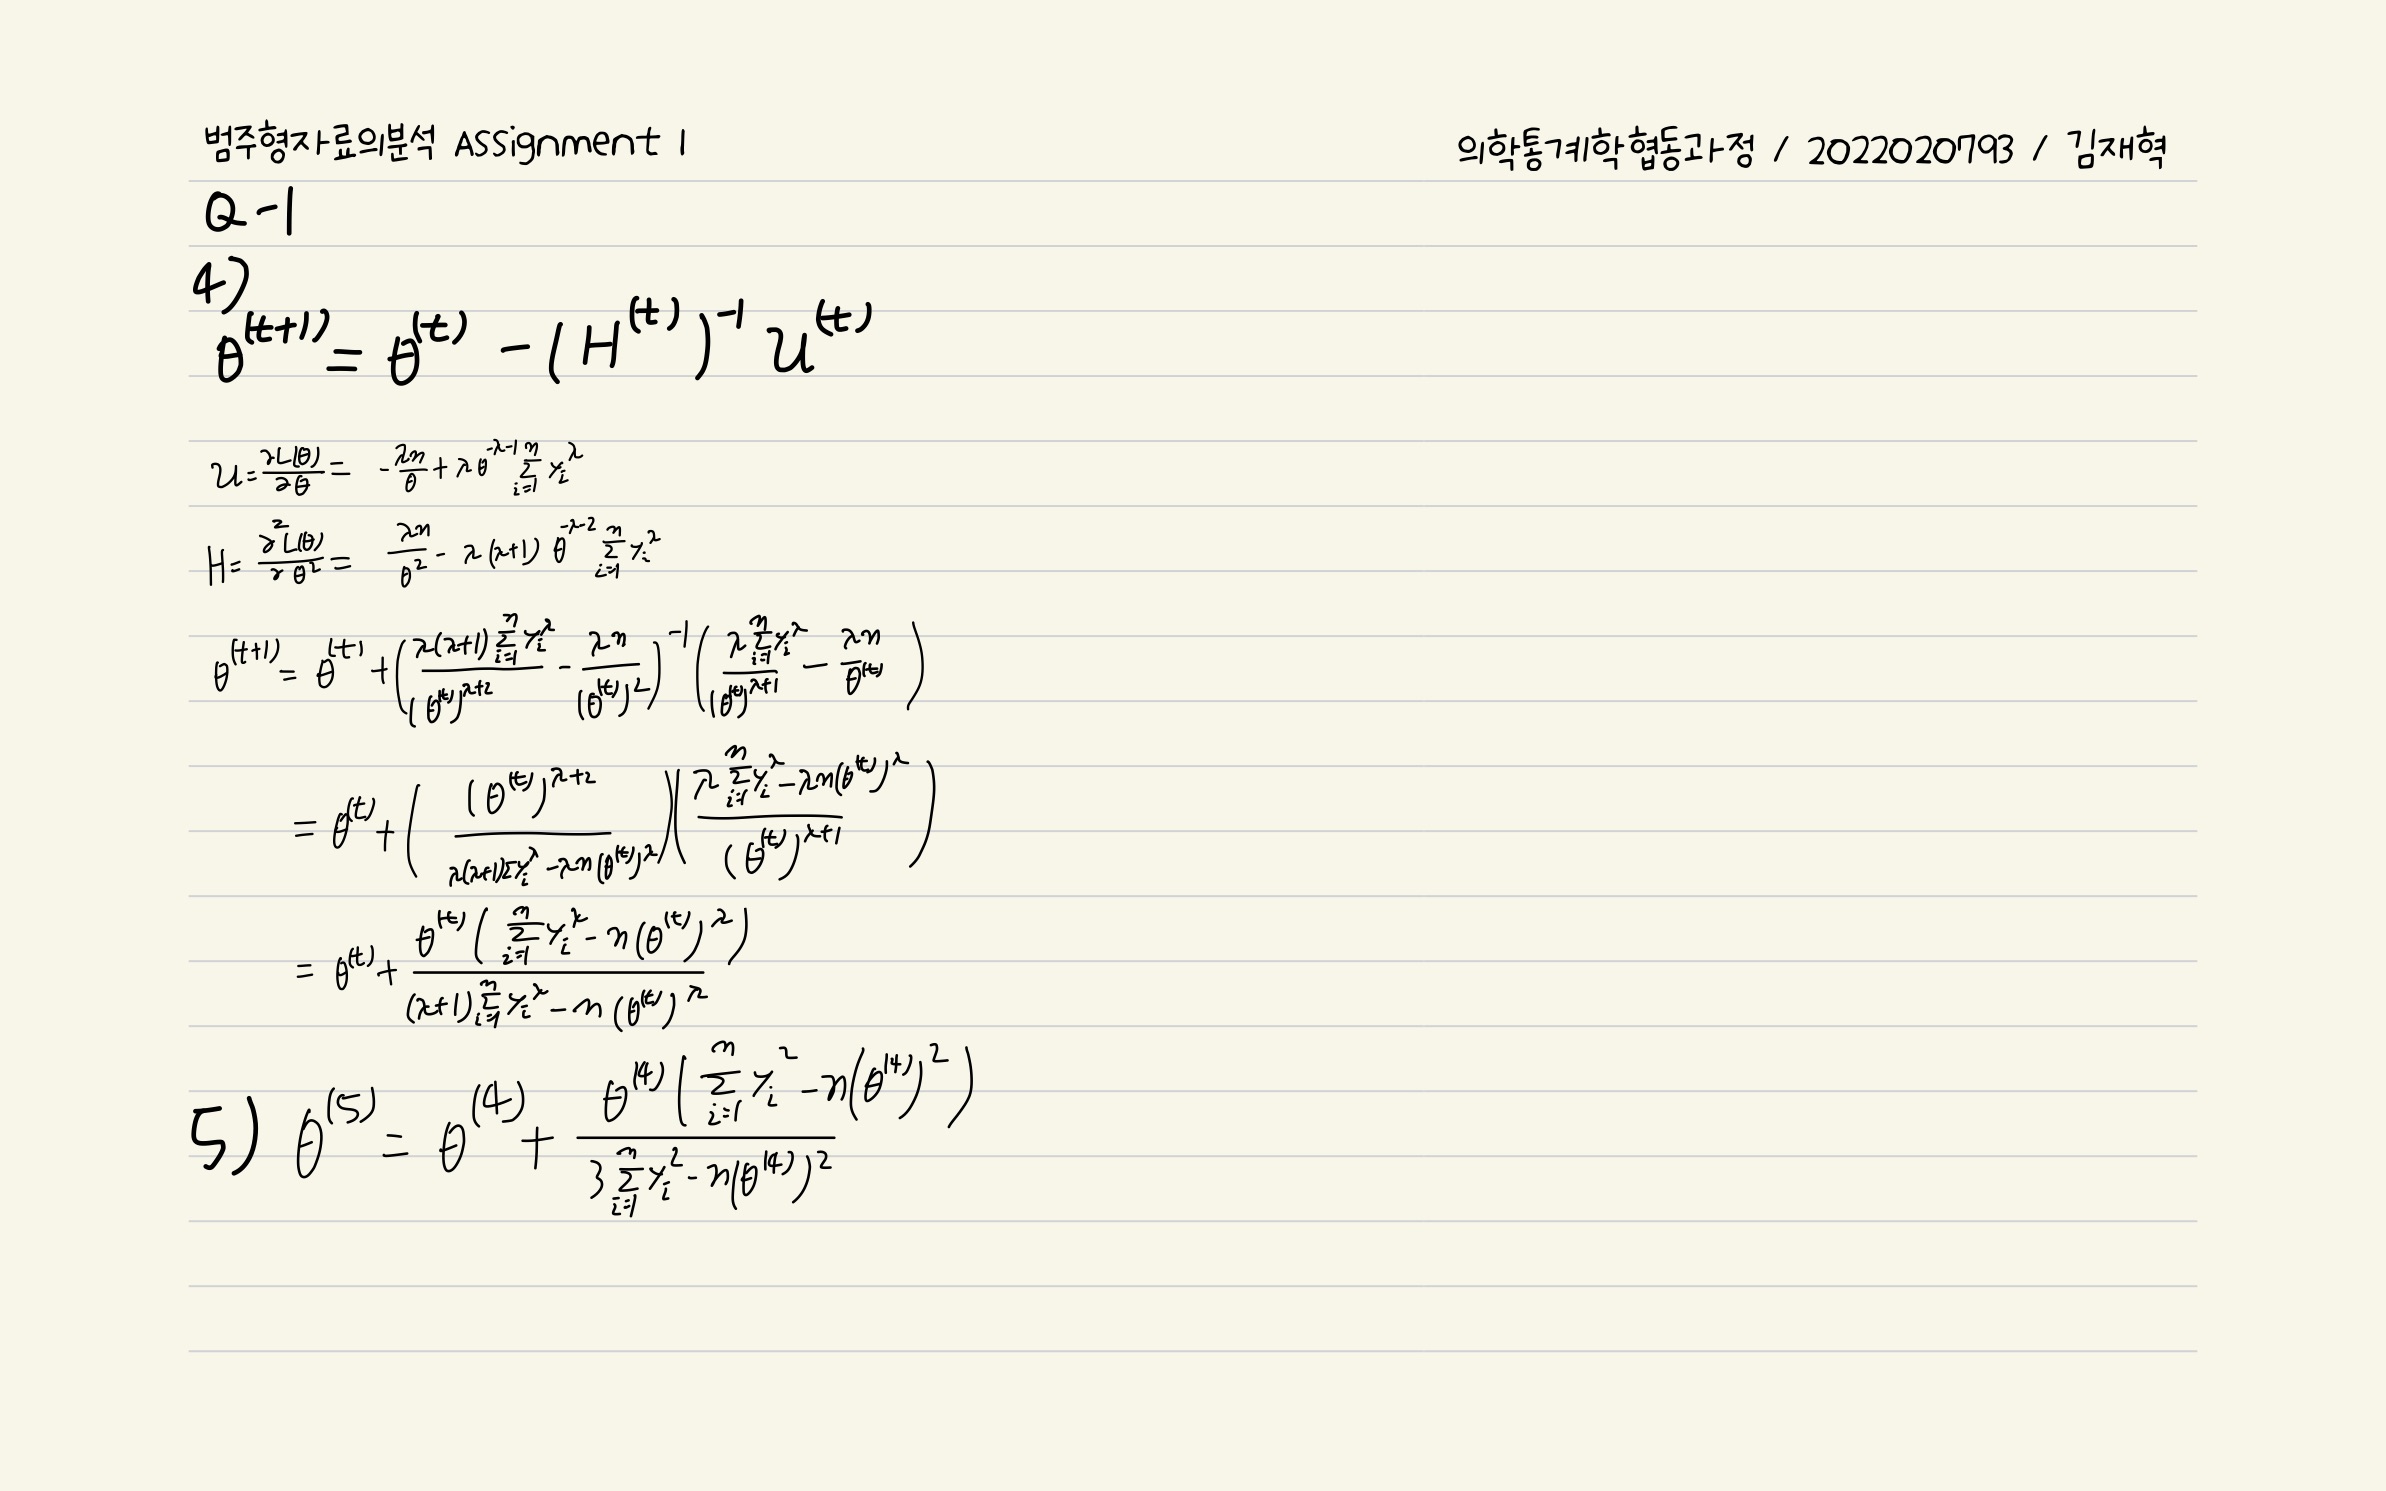 범주형자료의분석 Assignment 1
의학통계학협동과정 / 2022020793 / 김재혁
Q-1
4)
θ^(t+1) = θ^(t) - (H^(t))^-1 U^(t)
U = ∂L(θ)/∂θ = -λn/θ + λθ^(-λ-1) Σ_{i=1}^n y_i^λ
H = ∂²L(θ)/∂θ² = λn/θ² - λ(λ+1) θ^(-λ-2) Σ_{i=1}^n y_i^λ
θ^(t+1) = θ^(t) + (λ(λ+1) Σ_{i=1}^n y_i^λ / (θ^(t))^(λ+2) - λn / (θ^(t))^2)^-1 (λ Σ_{i=1}^n y_i^λ / (θ^(t))^(λ+1) - λn / θ^(t))
= θ^(t) + ((θ^(t))^(λ+2) / (λ(λ+1)Σy_i^λ - λn(θ^(t))^λ)) ((λ Σ_{i=1}^n y_i^λ - λn(θ^(t))^λ) / (θ^(t))^(λ+1))
= θ^(t) + θ^(t) (Σ_{i=1}^n y_i^λ - n(θ^(t))^λ) / ((λ+1) Σ_{i=1}^n y_i^λ - n(θ^(t))^λ)
5) θ^(5) = θ^(4) + θ^(4) (Σ_{i=1}^n y_i^2 - n(θ^(4))^2) / (3 Σ_{i=1}^n y_i^2 - n(θ^(4))^2)